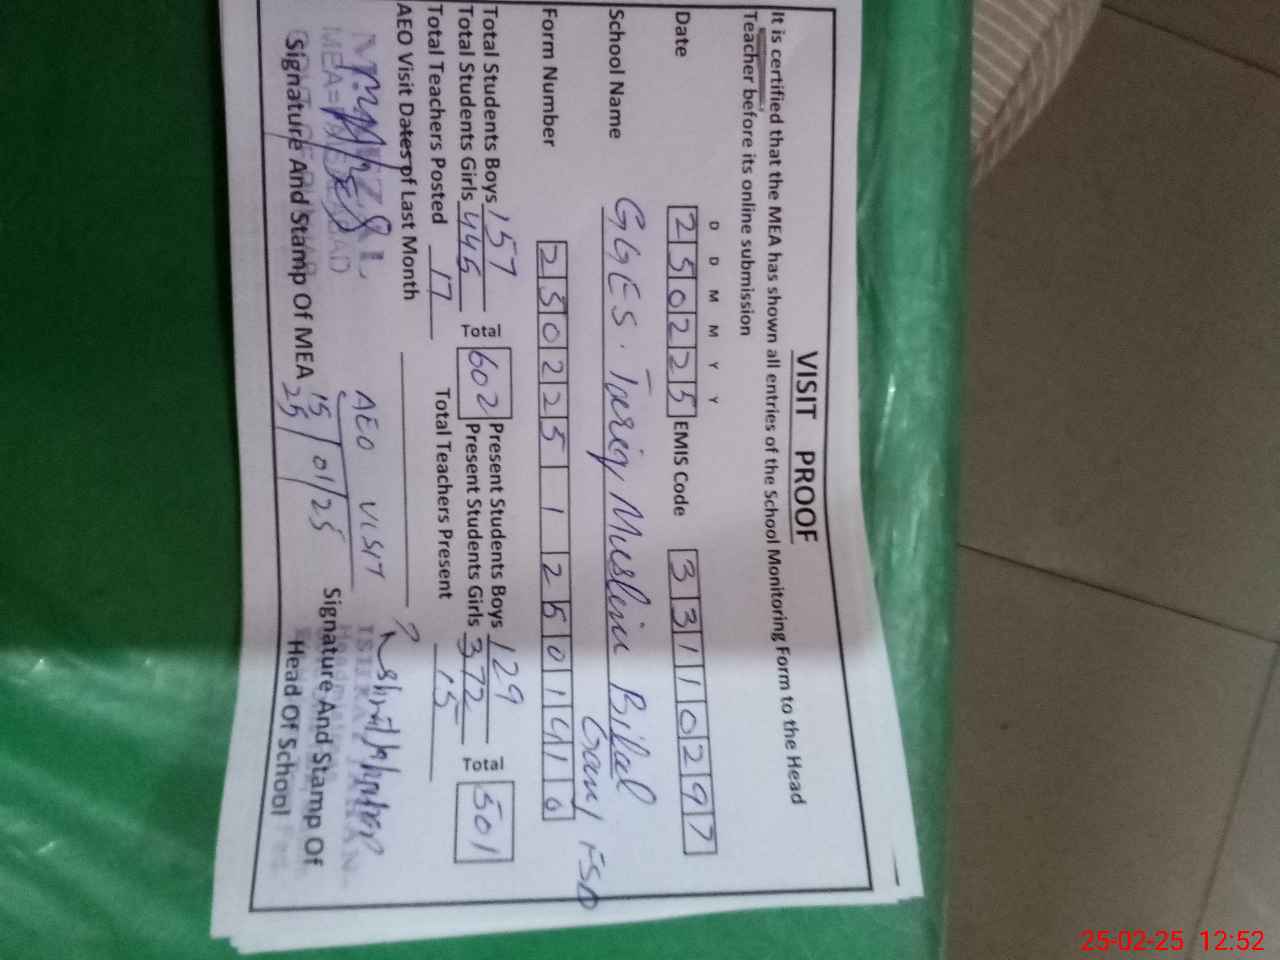 VISIT PROOF
It is certified that the MEA has shown all entries of the School Monitoring Form to the Head
Teacher before its online submission
D D M M Y Y
Date 250225 EMIS Code 33110297
School Name GGES. Tariq Muslim Bilal
Ganj FSD
Form Number 25022512501410
Total Students Boys 157 Total 602 Present Students Boys 129 Total 501
Total Students Girls 445 Present Students Girls 372
Total Teachers Posted 17 Total Teachers Present 15
AEO Visit Dates of Last Month
AEO VISIT
15/01/25
25
Signature And Stamp Of MEA
Signature And Stamp Of
Head Of School
25-02-25 12:52